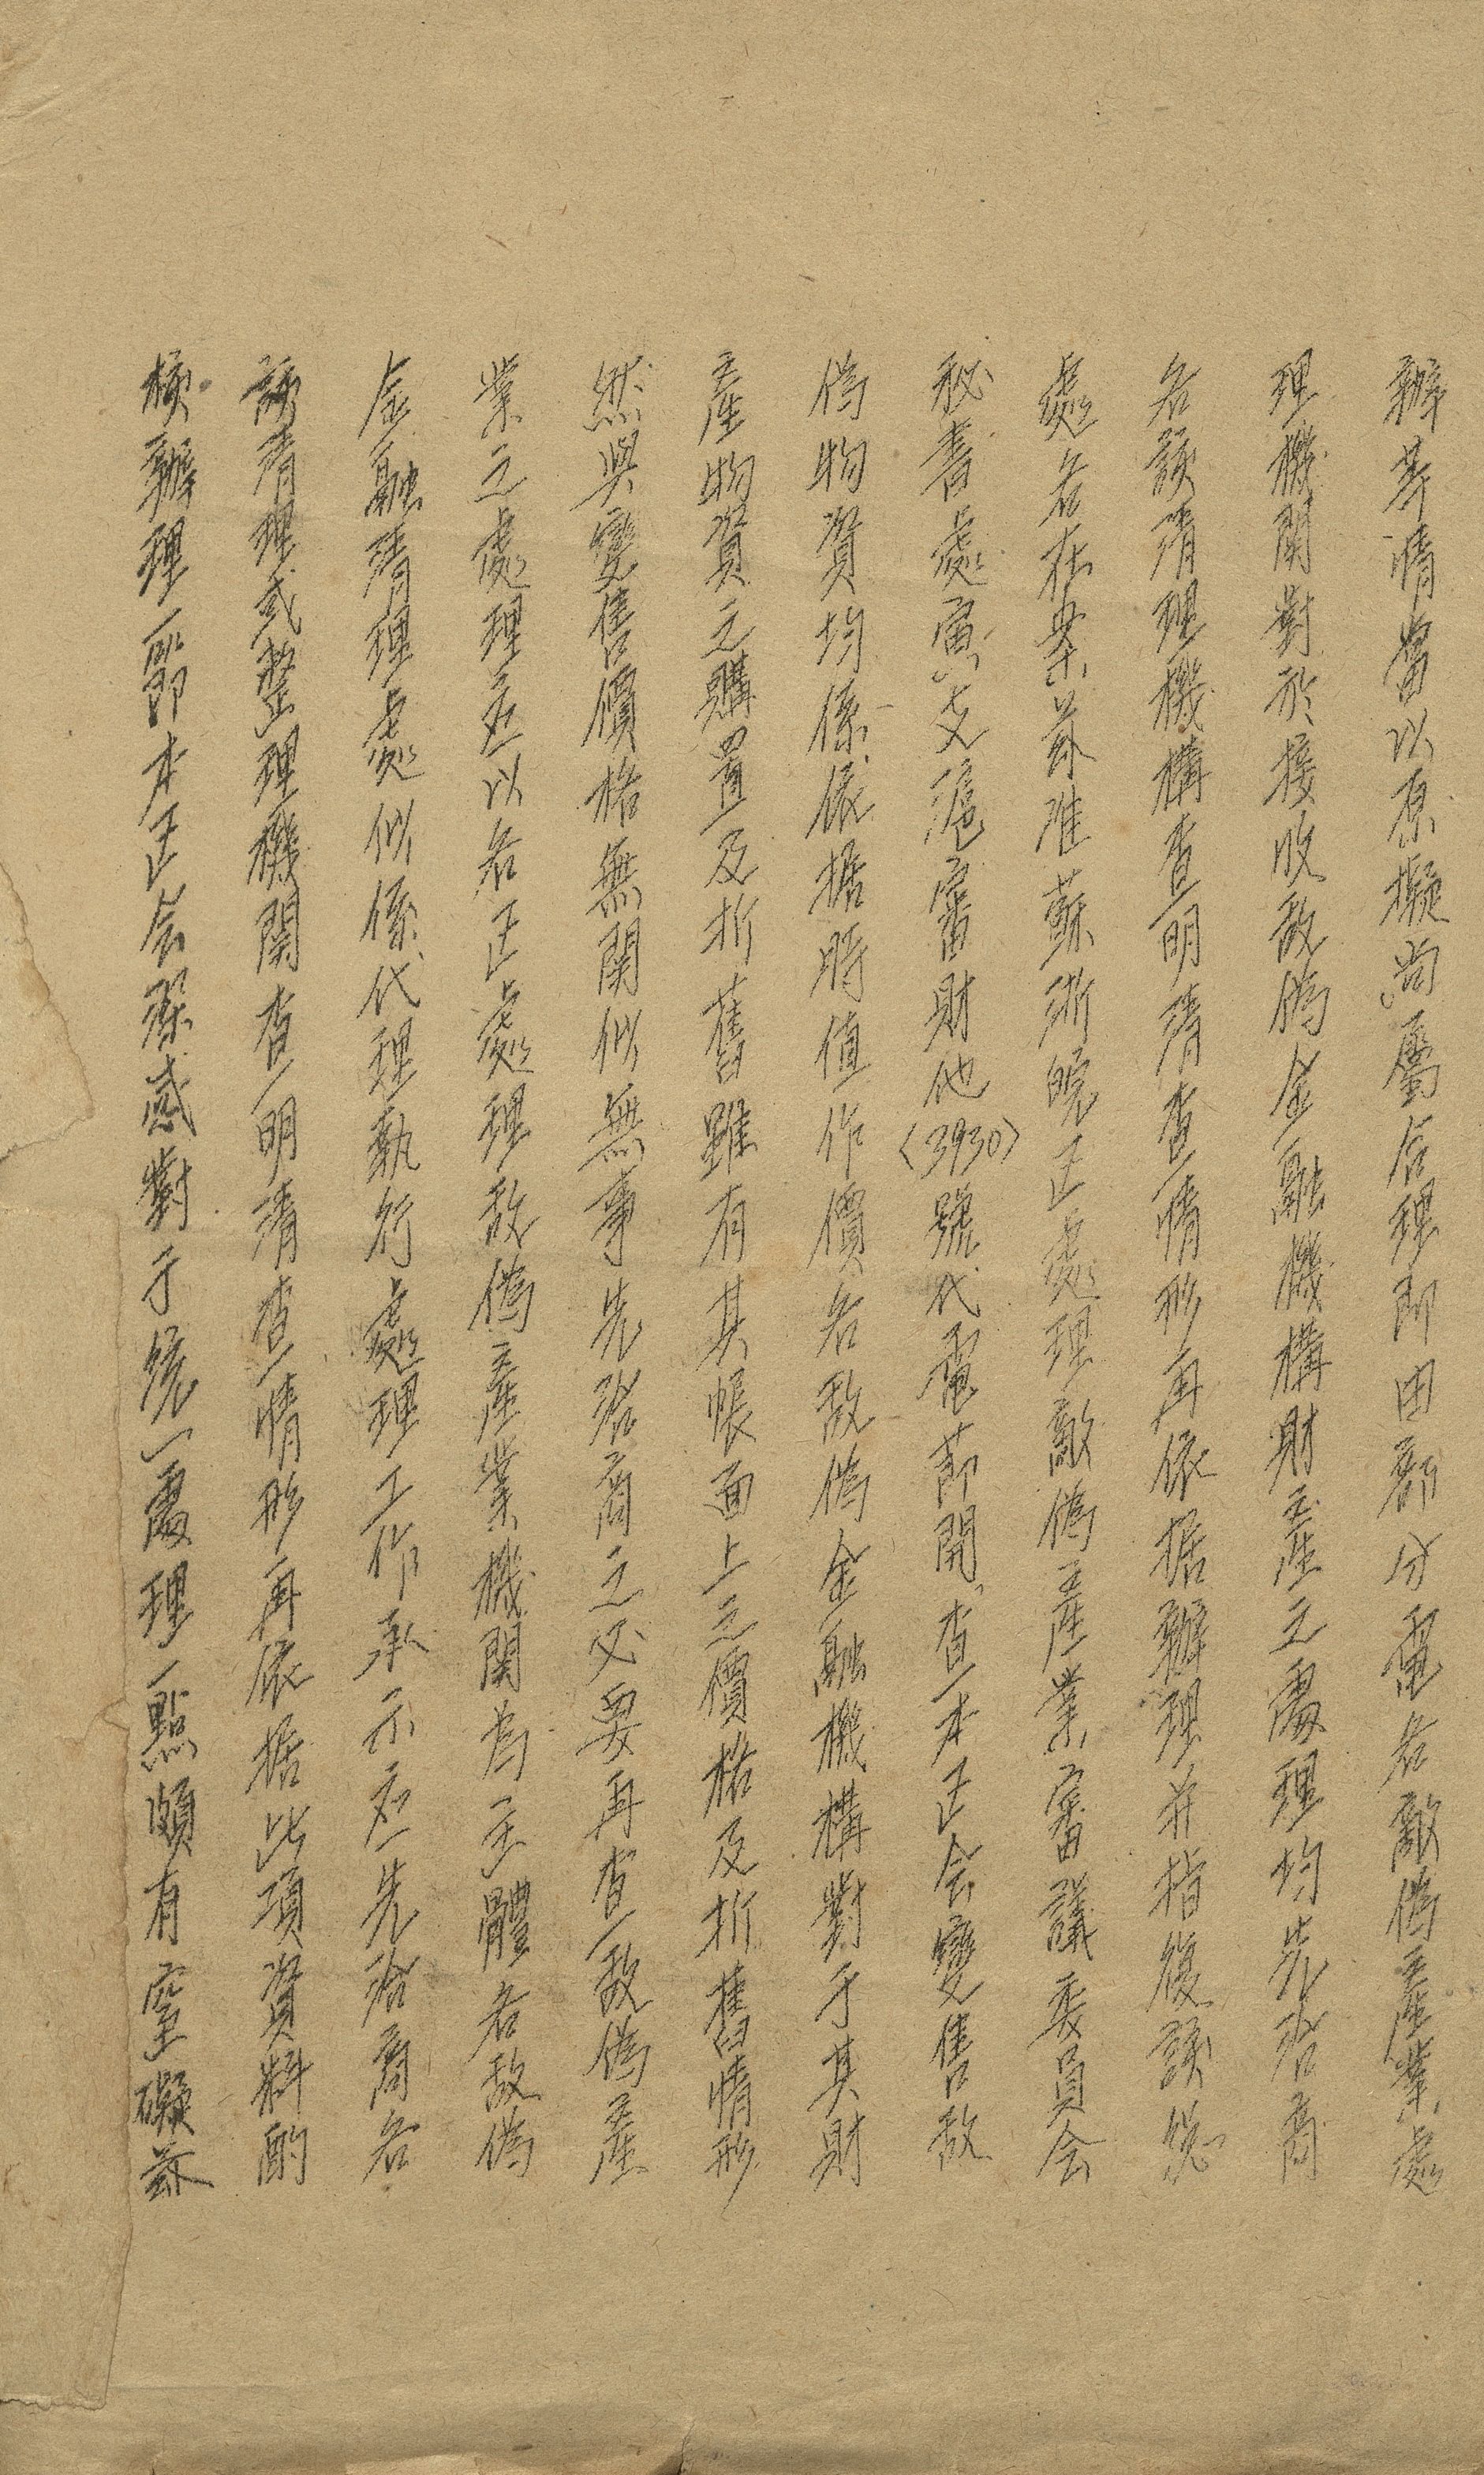 辦等情當以原擬尚屬合理即由部分電各敵偽產業處
理機関對於接收敌偽金融機構財產之處理均先洽商
各該清理機構查明清查情形再依据辦理并指復該總
處各在案茲准蘇浙皖区處理敵偽產業審議委員会
秘書處寅支滬審財他(3930)號代電莭開、查本区会變售敌
偽物資均係依据時值作價各敌偽金融機構對于其財
產物資之購置及折舊雖有其帳面上之價格及折舊情形
然與變售價格無関似無事先洽商之必要再查敌偽產
業之處理应以各区處理敌偽產業機関為主體各敌偽
金融清理處似係代理執行處理工作承示应先洽商各
該清理或整理機関查明清查情形再依据此項資料酌
核辦理一節本区会深感對于統一處理一點頗有窒礙茲